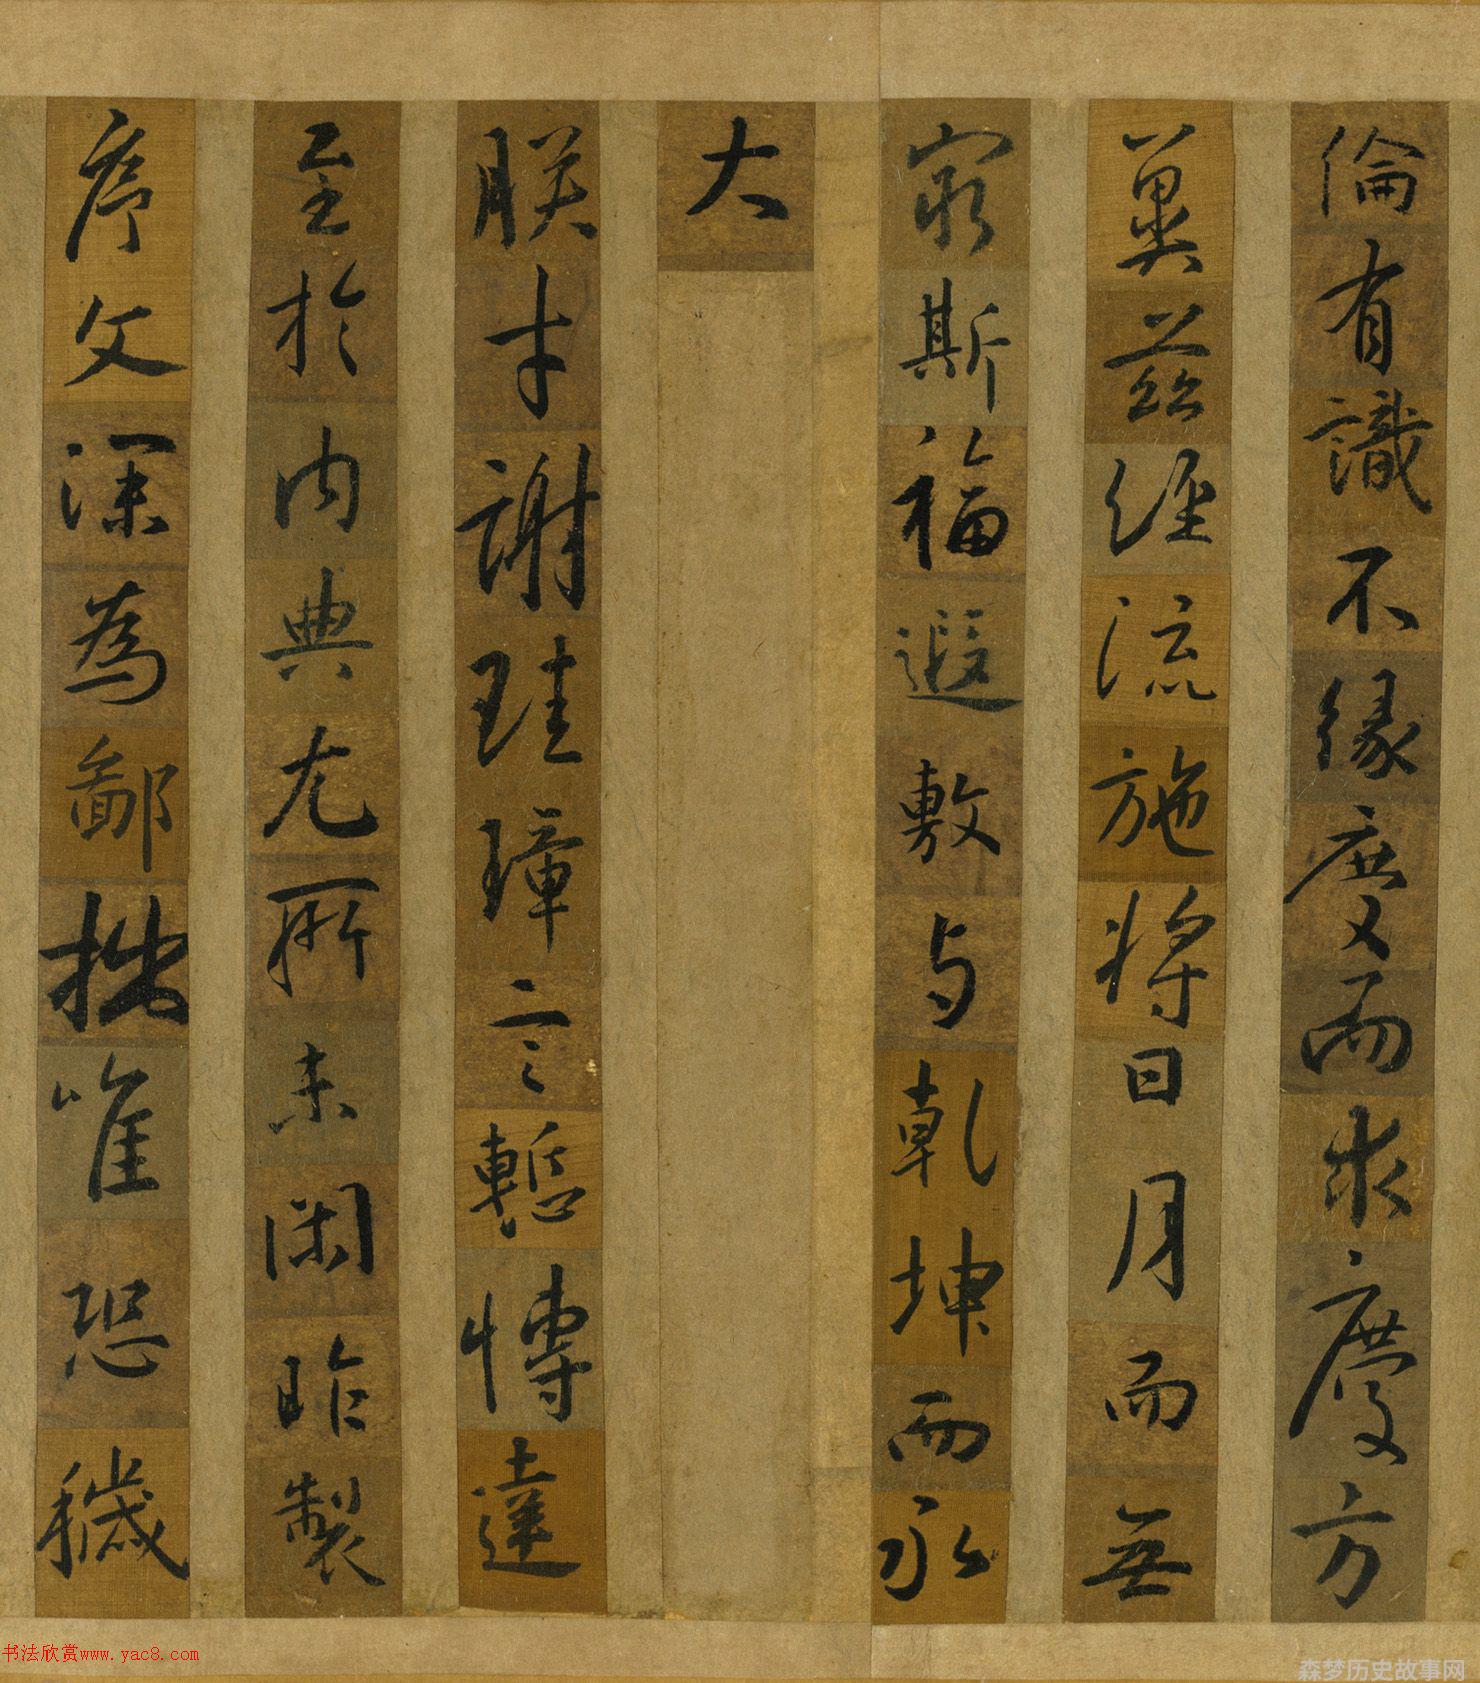 倫有識不緣慶而求慶方
冀茲經流施將日月而無
窮斯福遐敷与乾坤而永
大
朕才謝珪璋言慙愽達
至於内典尤所未閑昨製
序文深為鄙拙唯恐穢
书法欣赏www.yac8.com
森梦历史故事网